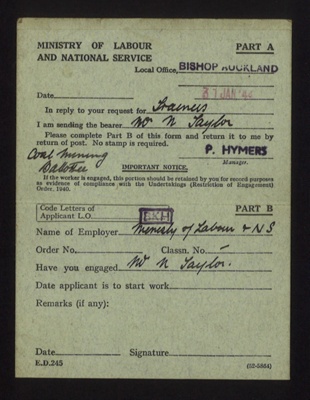 MINISTRY OF LABOUR PART A
AND NATIONAL SERVICE
Local Office, BISHOP AUCKLAND
Date 31 JAN '44
In reply to your request for Trainees
I am sending the bearer Mr N Taylor
Please complete Part B of this form and return it to me by
return of post. No stamp is required.
Coal Mining P. HYMERS
Manager.
IMPORTANT NOTICE.
If the worker is engaged, this portion should be retained by you for record purposes
as evidence of compliance with the Undertakings (Restriction of Engagement)
Order, 1940.
Code Letters of PART B
Applicant L.O.
Name of Employer Ministry of Labour & N S
Order No. Classn. No.
Have you engaged Mr N Taylor.
Date applicant is to start work
Remarks (if any):
Date Signature
E.D.245